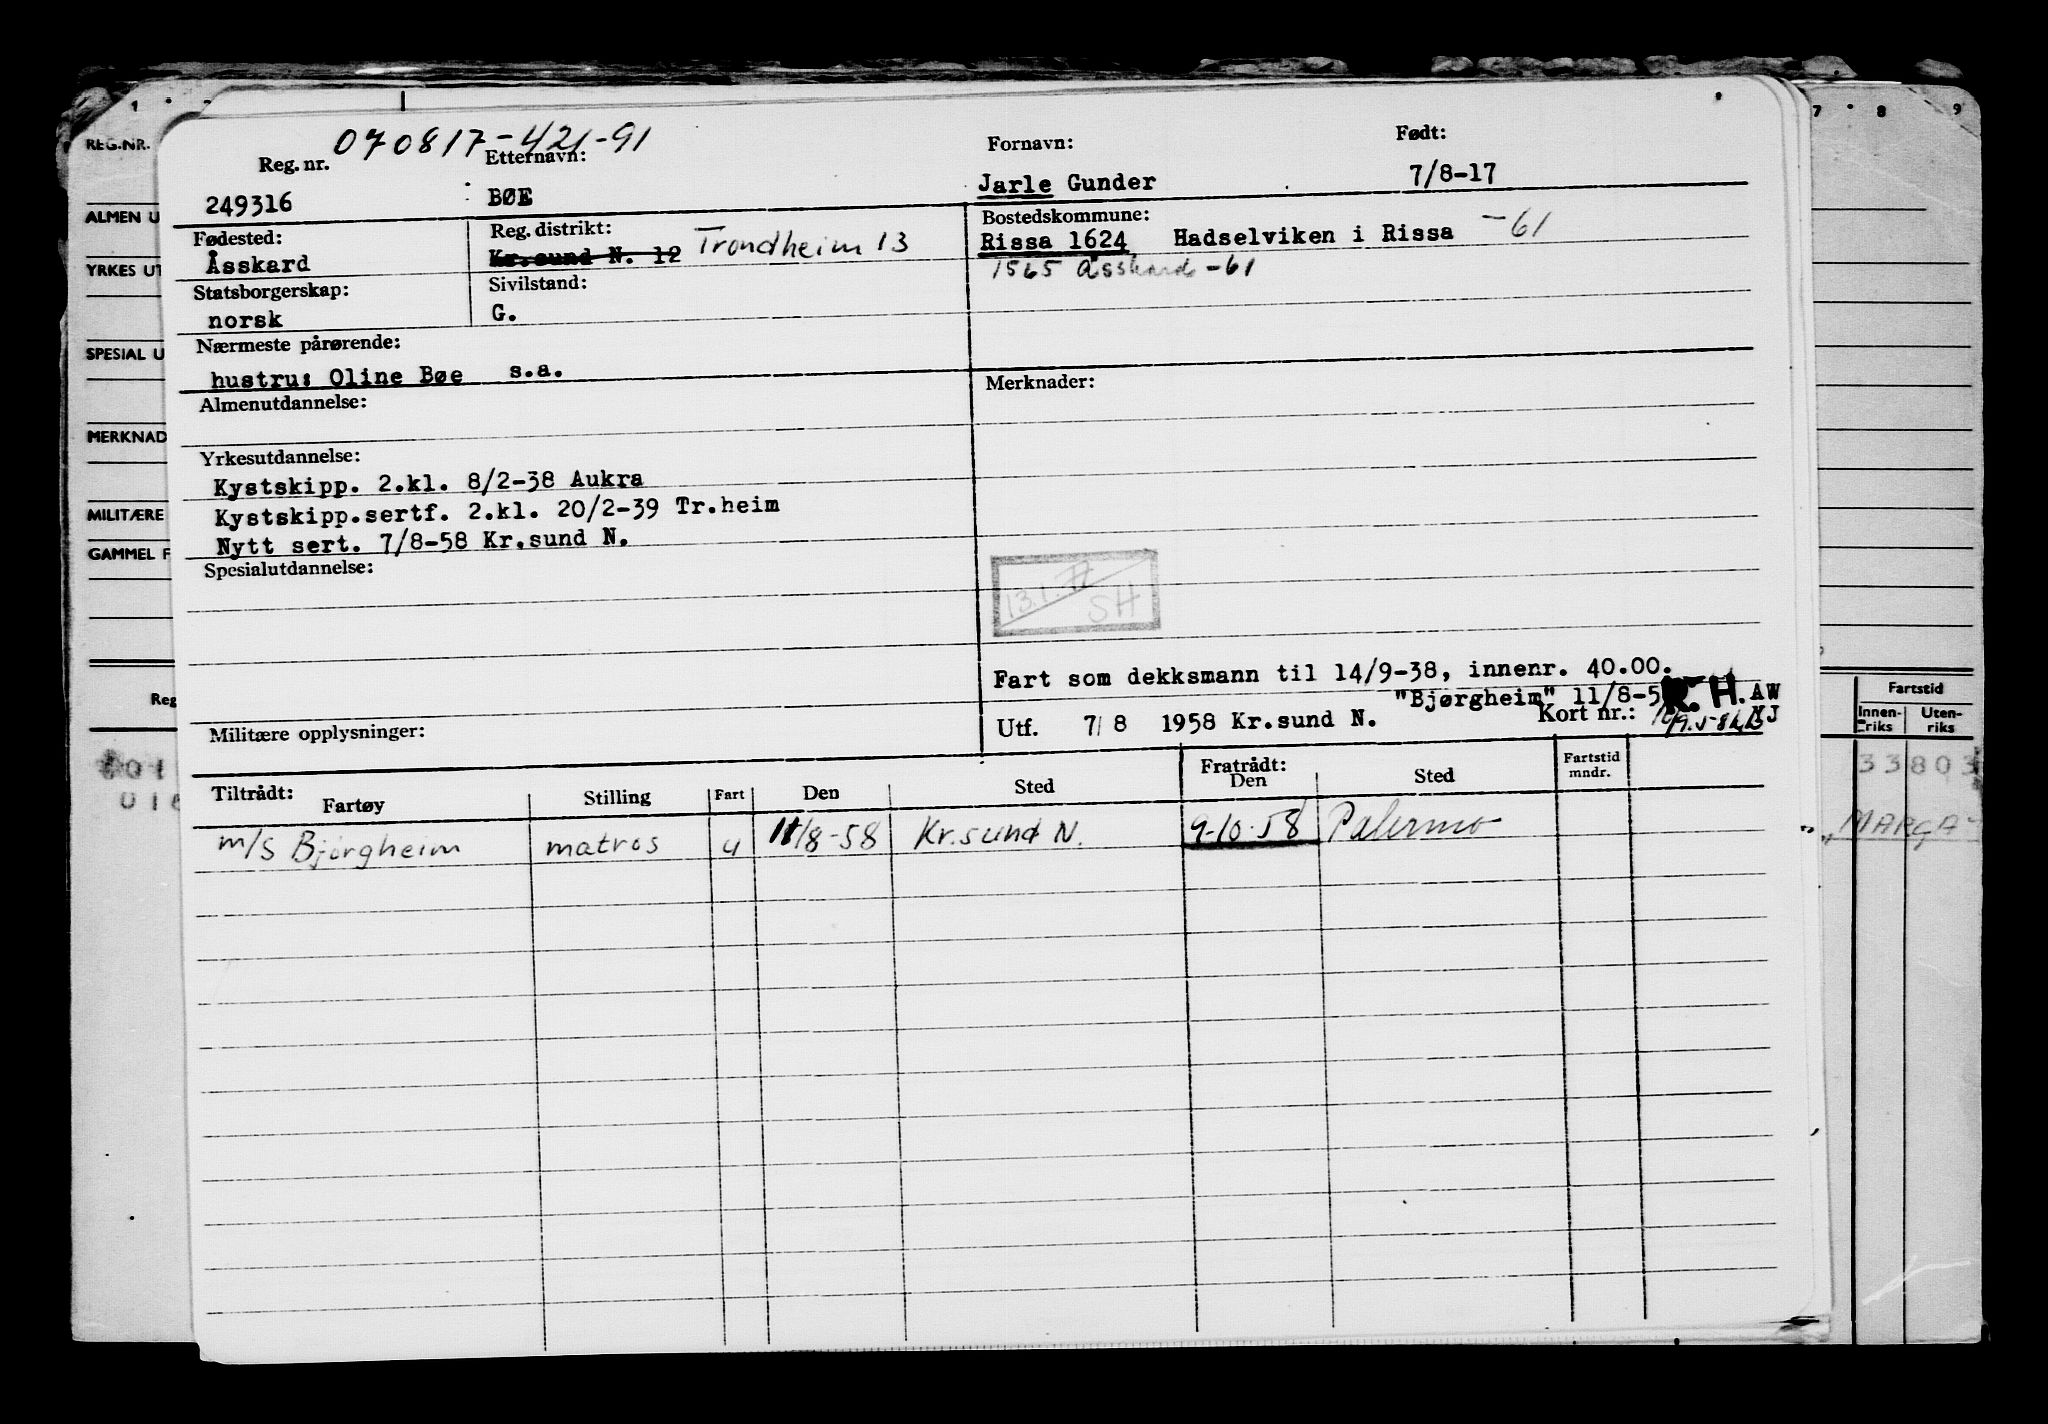 070817-421-91
Reg. nr. Etternavn: Fornavn: Født:
249316 BØE Jarle Gunder 7/8-17
Fødested: Reg. distrikt: Bostedskommune:
Åsskard Kr.sund N. 12 Trondheim 13 Rissa 1624 Hadselviken i Rissa -61
1565 Åsskard -61
Statsborgerskap: Sivilstand:
norsk G.
Nærmeste pårørende:
hustru: Oline Bøe s.a.
Almenutdannelse: Merknader:
Yrkesutdannelse:
Kystskipp. 2.kl. 8/2-38 Aukra
Kystskipp.sertf. 2.kl. 20/2-39 Tr.heim
Nytt sert. 7/8-58 Kr.sund N.
Spesialutdannelse:
13.1.77
SH
Fart som dekksmann til 14/9-38, innenr. 40.00.
"Bjørgheim" 11/8-5 R. H. AW
Militære opplysninger: Utf. 7/8 1958 Kr.sund N. Kort nr.:
Tiltrådt: Fratrådt: Fartstid
Fartøy Stilling Fart Den Sted Den Sted mndr.
m/s Bjørgheim matros u 11/8-58 Kr.sund N. 9-10-58 Palermo
1
REG.NR.
ALMEN U
YRKES UT
SPESIAL U
MERKNAD
MILITÆRE
GAMMEL F
Reg
7 8 9
Fartstid
Innen- Uten-
riks riks
33803
MARGA